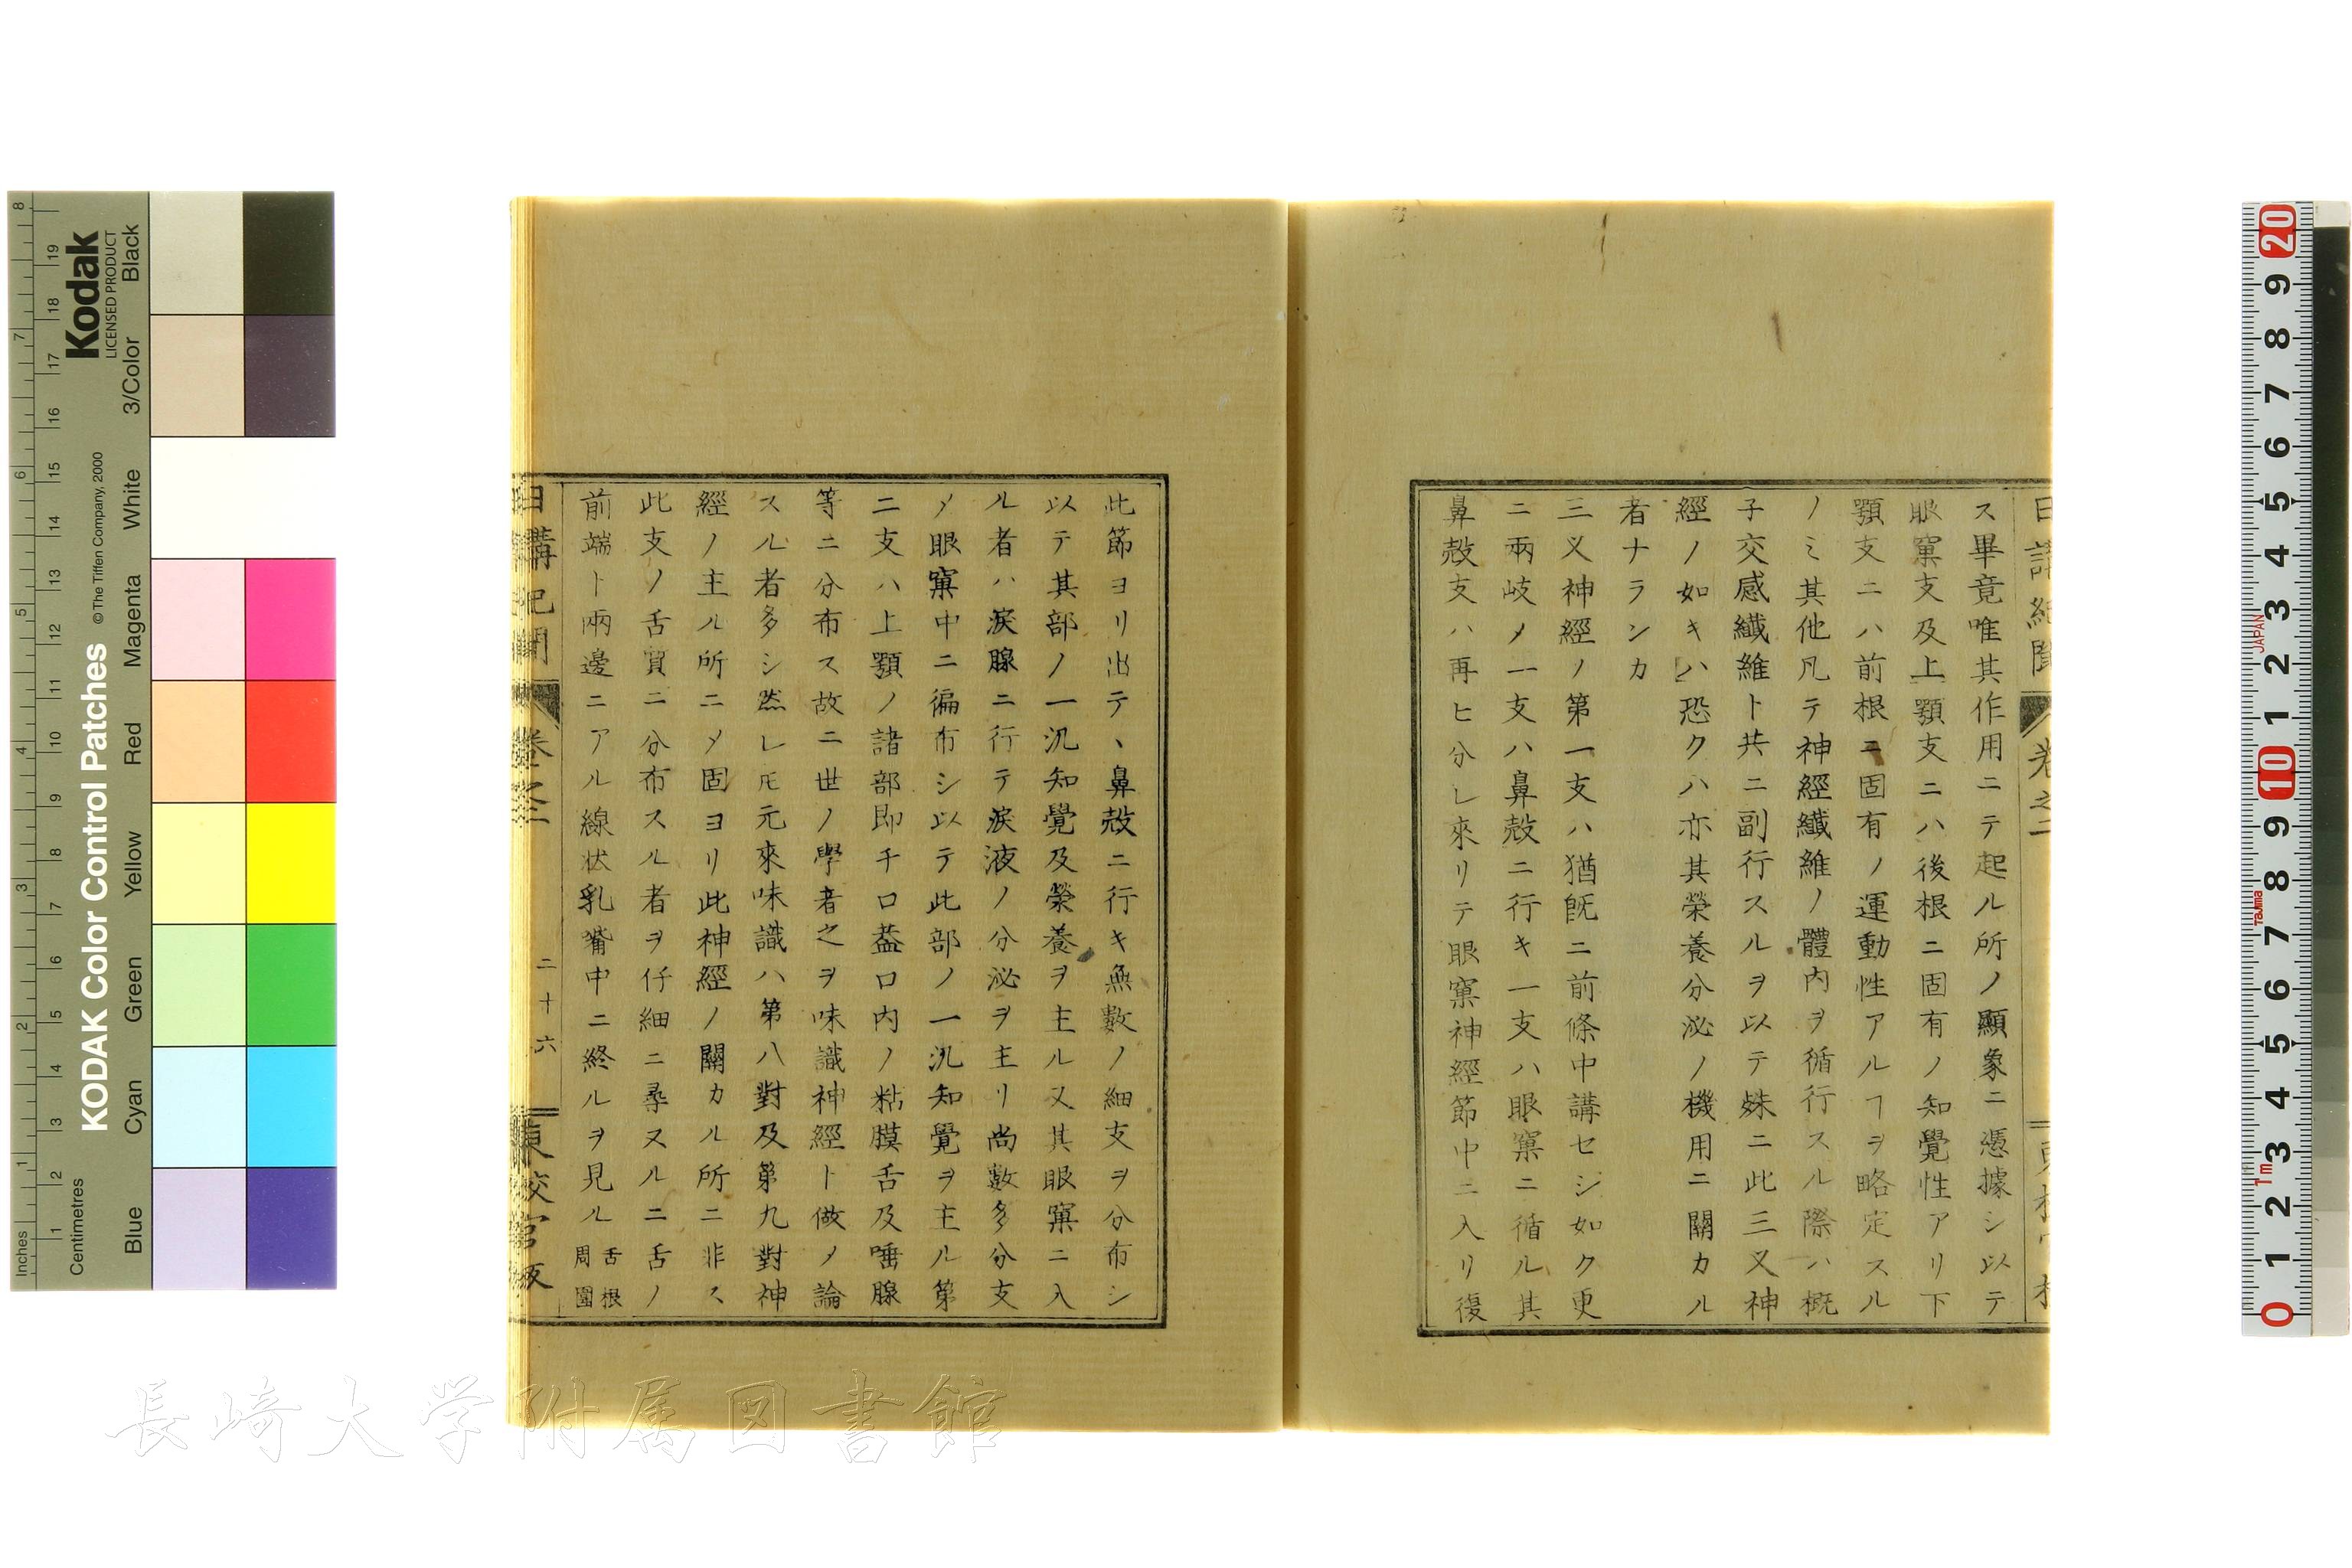 ス畢竟唯其作用ニテ起ル所ノ顯象ニ憑據シ以テ
眼窠支及上顎支ニハ後根ニ固有ノ知覺性アリ下
顎支ニハ前根ニ固有ノ運動性アルヿヲ略定スル
ノミ其他凡テ神經纎維ノ體内ヲ循行スル際ハ概
子交感纎維ト共ニ副行スルヲ以テ殊ニ此三叉神
經ノ如キハ恐クハ亦其榮養分泌ノ機用ニ關カル
者ナランカ
三叉神經ノ第一支ハ猶既ニ前條中講セシ如ク更
ニ兩岐メ一支ハ鼻殻ニ行キ一支ハ眼窠ニ循ル其
鼻殻支ハ再ヒ分レ來リテ眼窠神經節中ニ入リ復
此節ヨリ出テ、鼻殻ニ行キ無數ノ細支ヲ分布シ
以テ其部ノ一汎知覺及榮養ヲ主ル又其眼窠ニ入
ル者ハ淚腺ニ行テ淚液ノ分泌ヲ主リ尚數多分支
メ眼窠中ニ徧布シ以テ此部ノ一汎知覺ヲ主ル第
二支ハ上顎ノ諸部即チ口蓋口内ノ粘膜舌及唾腺
等ニ分布ス故ニ世ノ學者之ヲ味識神經ト做メ論
スル者多シ然レ𪜈元來味識ハ第八對及第九對神
經ノ主ル所ニメ固ヨリ此神經ノ關カル所ニ非ス
此支ノ舌質ニ分布スル者ヲ仔細ニ尋ヌルニ舌ノ
前端ト兩邊ニアル線状乳嘴中ニ終ルヲ見ル舌根
周圍
日講記聞 卷之二
二十六
KODAK Color Control Patches
© The Tiffen Company, 2000
Kodak
LICENSED PRODUCT
Inches 1 2 3 4 5 6 7 8
Centimetres 1 2 3 4 5 6 7 8 9 10 11 12 13 14 15 16 17 18 19
Blue Cyan Green Yellow Red Magenta White 3/Color Black
0 1 2 3 4 5 6 7 8 9 10 1 2 3 4 5 6 7 8 9 20
1m Tajima JAPAN
長崎大学附属図書館